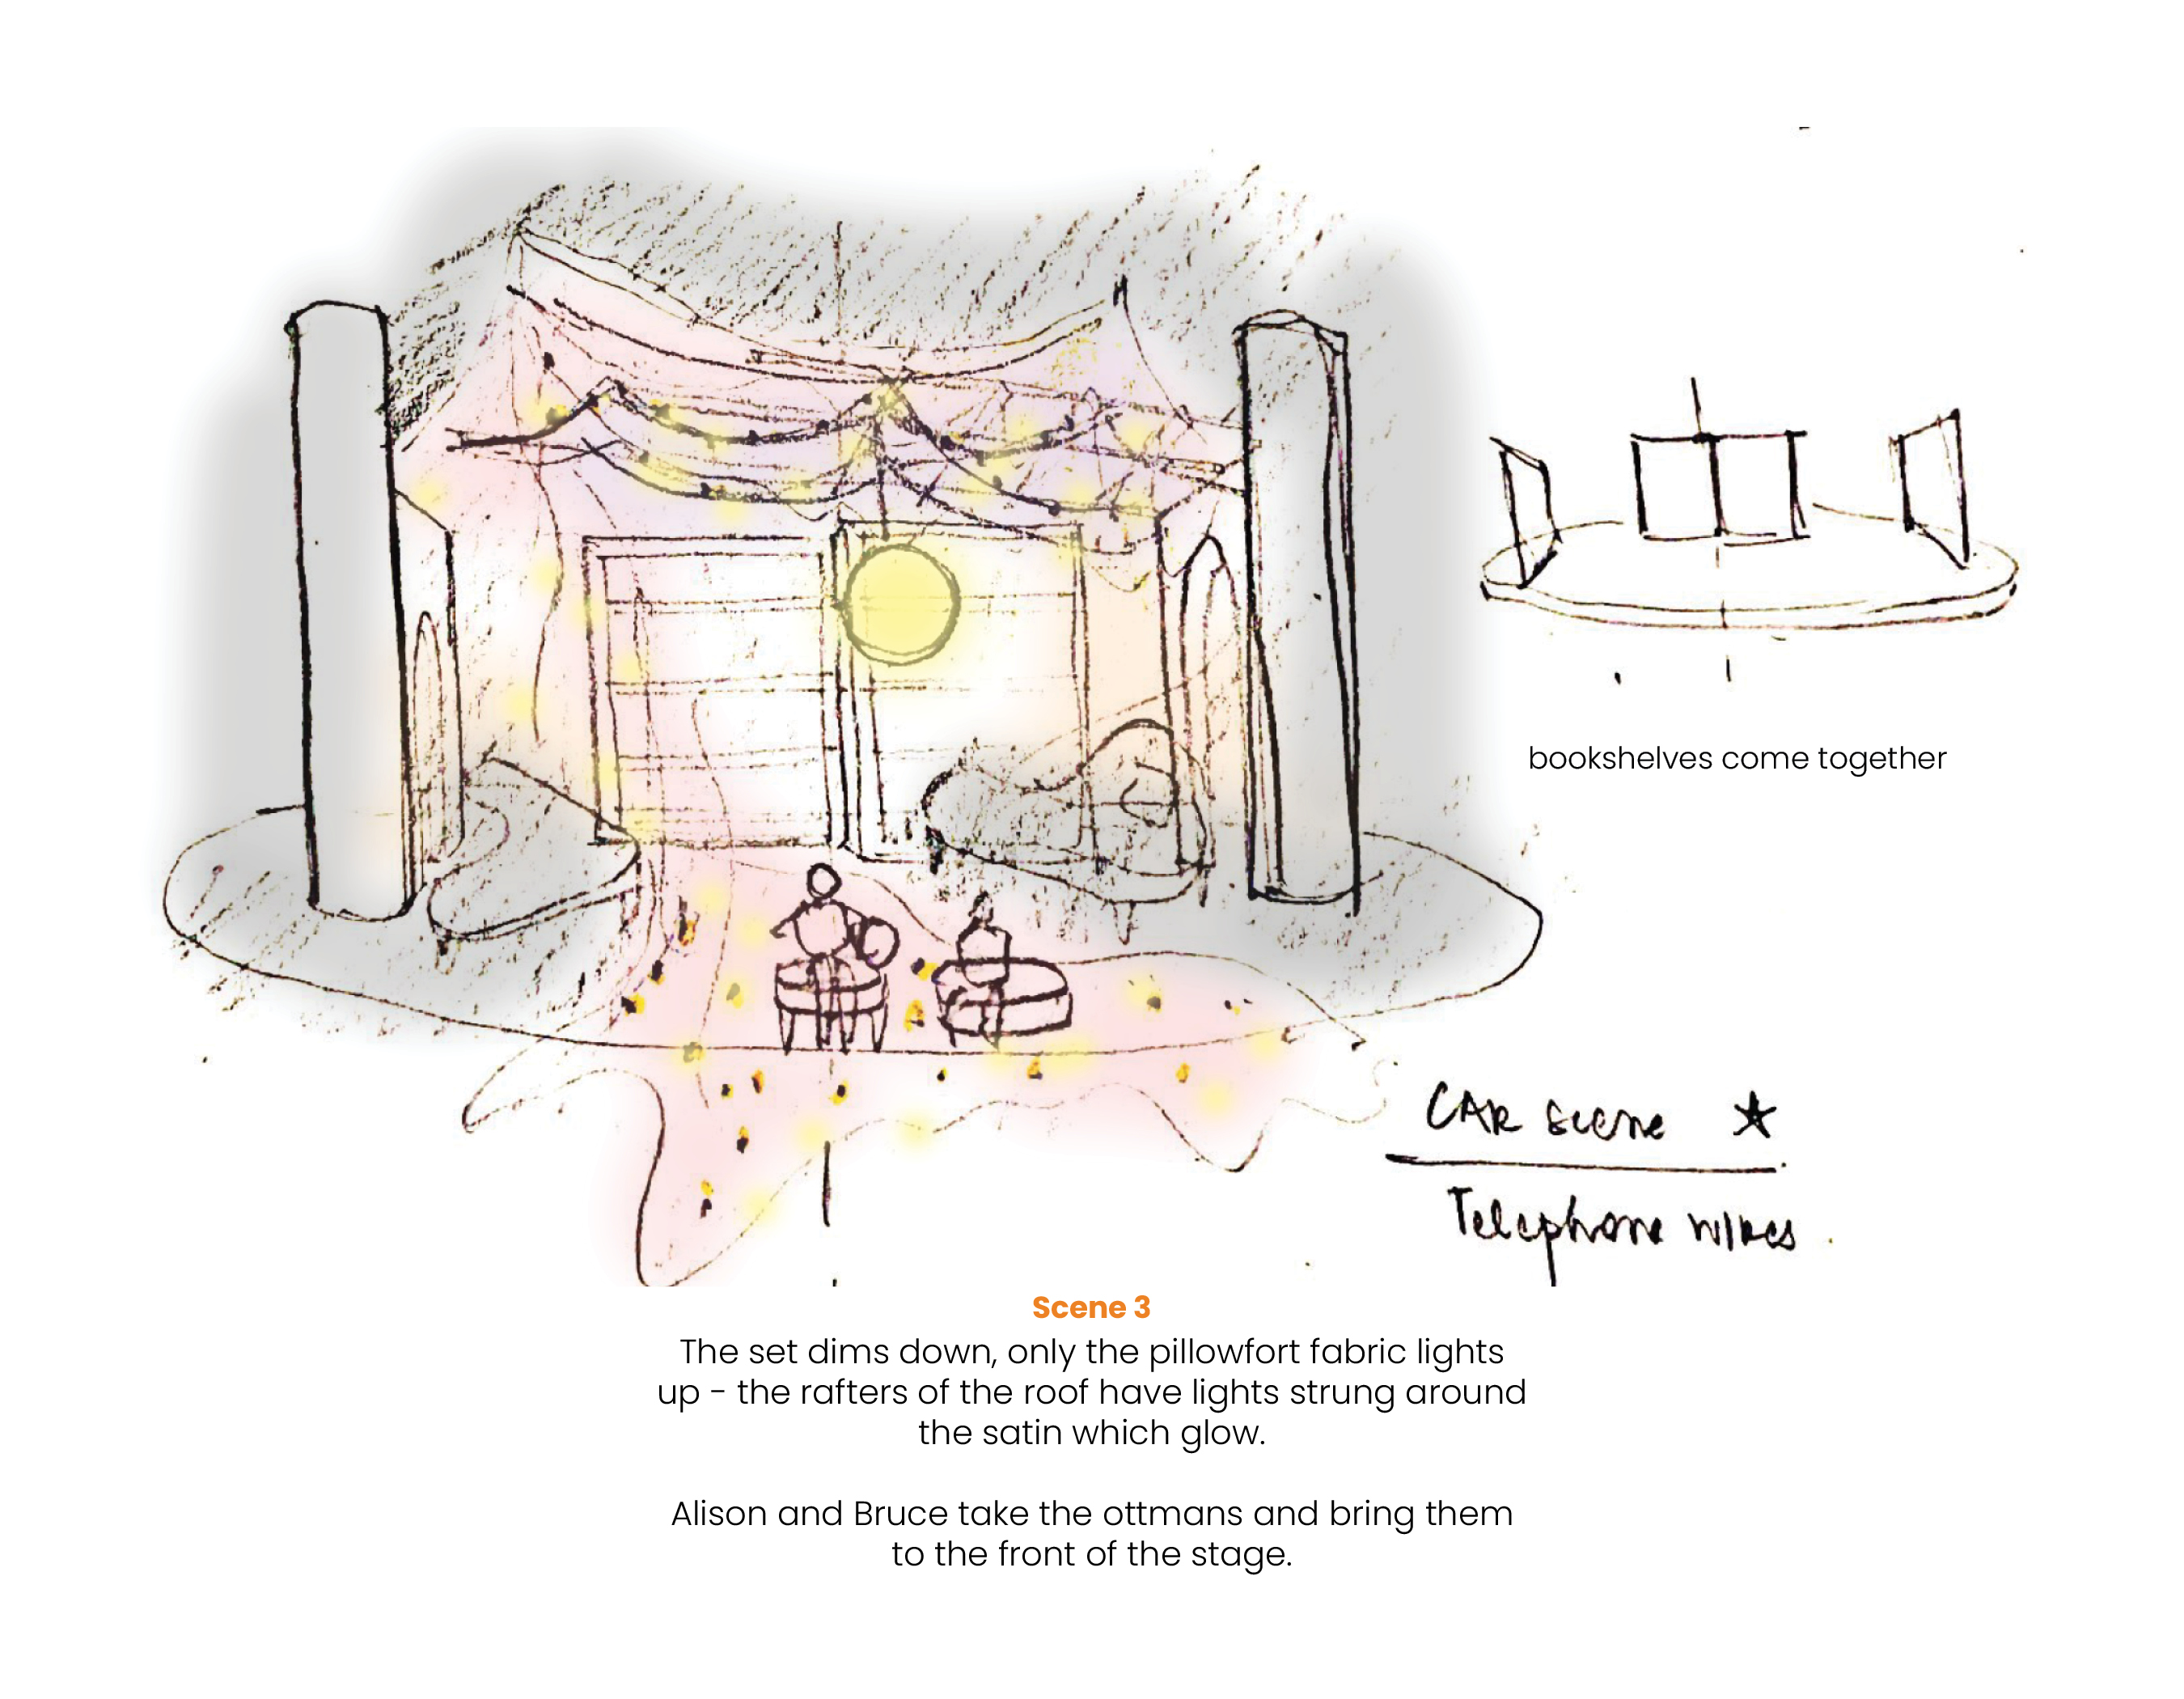 bookshelves come together
CAR scene
Telephone wires
Scene 3
The set dims down, only the pillowfort fabric lights
up - the rafters of the roof have lights strung around
the satin which glow.
Alison and Bruce take the ottmans and bring them
to the front of the stage.